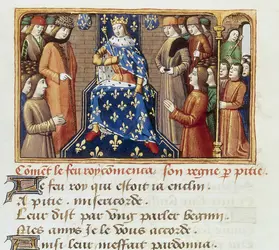 Com̃et le feu roy com̃enca son regne p pitie.
Le feu roy qui estoit ia enclin
A pitie misericorde.
Leur dist par vng parler begnin
Mes amys Je le vous accorde
Ainsi leur meffait pardonna